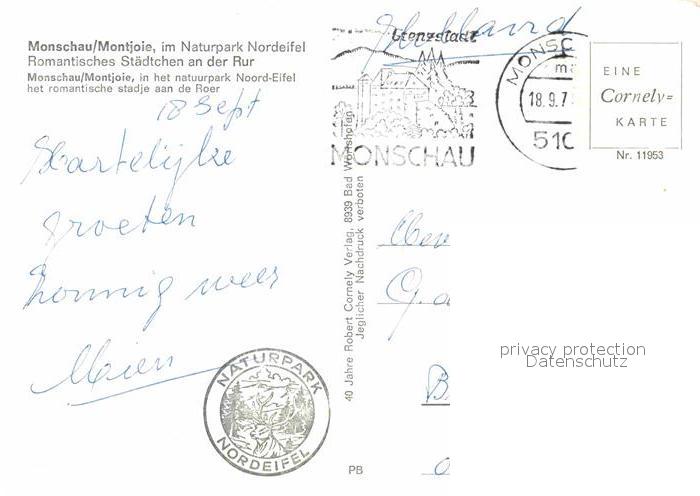 Monschau/Montjoie, im Naturpark Nordeifel
Romantisches Städtchen an der Rur
Monschau/Montjoie, in het natuurpark Noord-Eifel
het romantische stadje aan de Roer
18 Sept
Hartelijke
groeten
zonnig weer
Mien
Holland
Grenzstadt
MONSCHAU
MONSC
18.9.7
510
EINE
Cornely=
KARTE
Nr. 11953
40 Jahre Robert Cornely Verlag, 8939 Bad Wörishofen
Jeglicher Nachdruck verboten
privacy protection
Datenschutz
NATURPARK
NORDEIFEL
PB